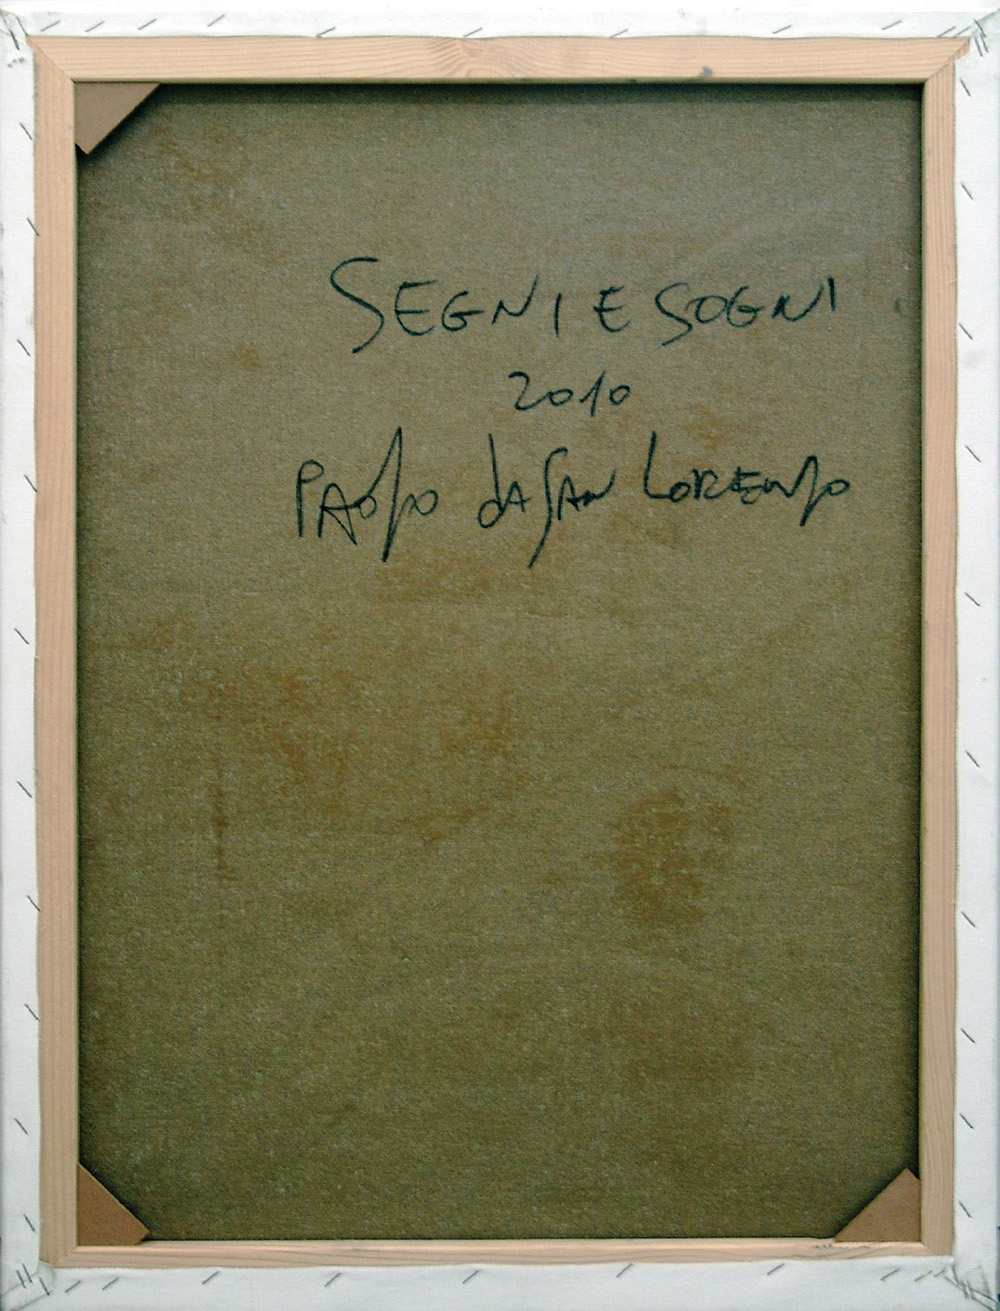 SEGNI E SOGNI
2010
PAOLO dA SAN LORENZO